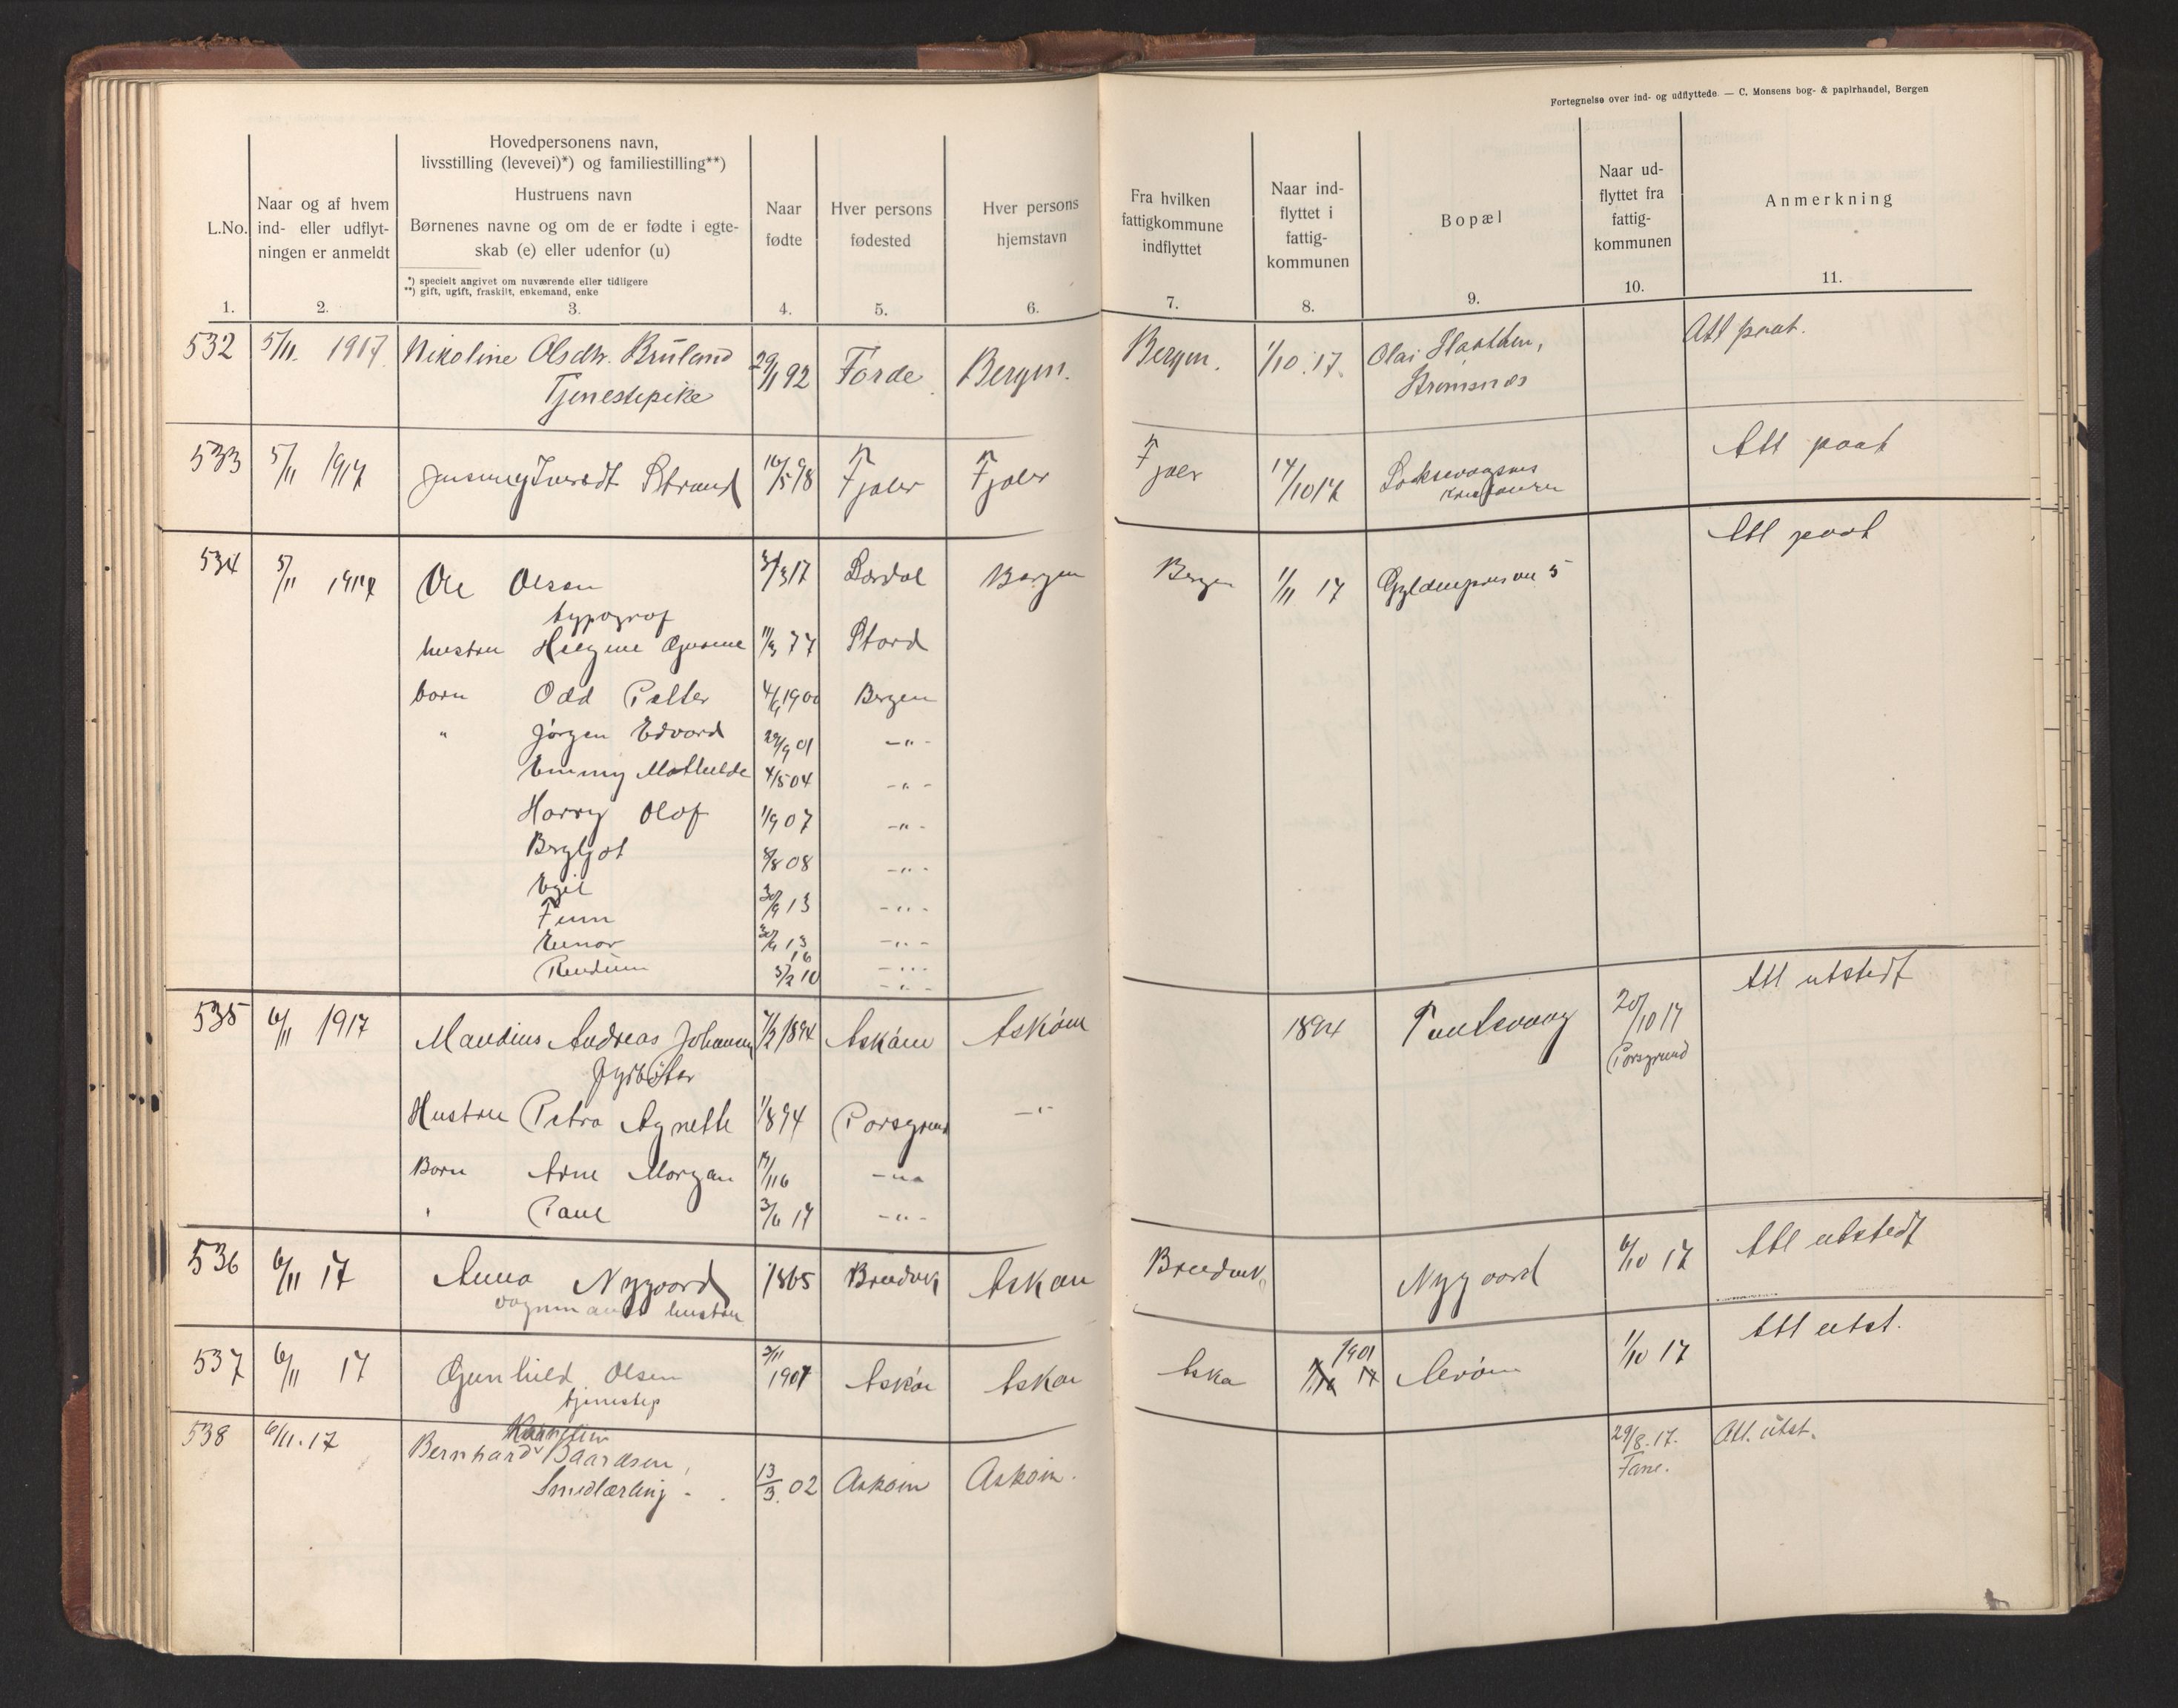 Fortegnelse over ind- og udflyttede. — C. Monsens bog- & papirhandel, Bergen
L.No.
1.
Naar og af hvem
ind- eller udflyt-
ningen er anmeldt
2.
Hovedpersonens navn,
livsstilling (levevei)*) og familiestilling**)
Hustruens navn
Børnenes navne og om de er fødte i egte-
skab (e) eller udenfor (u)
*) specielt angivet om nuværende eller tidligere
**) gift, ugift, fraskilt, enkemand, enke
3.
Naar
fødte
4.
Hver persons
fødested
5.
Hver persons
hjemstavn
6.
Fra hvilken
fattigkommune
indflyttet
7.
Naar ind-
flyttet i
fattig-
kommunen
8.
Bopæl
9.
Naar ud-
flyttet fra
fattig-
kommunen
10.
Anmerkning
11.
532 5/11. 1917. Nikoline Olsdtr. Bruland 29/11 92 Førde Bergen. Bergen. 1/10.17. Olai
Tjenestepike Strømsnes
Att paat.
533 5/11 1917 Strand Fjaler Fjaler Fjaler 14/10 17
Att paat
534 5/11 1917 Ole Olsen 3/3 17 Lærdal Bergen Bergen 1/11 17 5
Att paat
typograf
hustru 77 Stord
barn Odd Petter 1900 Bergen
" Jørgen Edvard 29/9 01 - " -
Emmy Mathilde 4/5 04 - " -
Harry Olaf 1/9 07 - " -
Bergljot 8/8 08 - " -
Egil 30/9 13 - " -
Finn - " -
Einar 13 - " -
16
3/2 10 - " -
535 6/11 1917 Mandius Andreas Johansen 7/2 1894 Askøen Askøen 1894 20/10 17
Porsgrund
Att utstedt
Hustru Petra Agnethe 1/8 94 Porsgrund - " -
Barn Arne Morgan 1/16 - " -
" Paul 3/6 17 - " -
536 6/11 17 Anna Nygaard 1865 Bredvik Askøen Bredvik Nygaard 6/10 17 Att utstedt
vognmands hustru
537 6/11 17 Gunhild Olsen 3/11 1901 Askøen Askøen Askø 1901 1/10 17 Att utst.
tjenestep
538 6/11.17 Bernhard Baardsen, 13/3. 02 Askøen Askøen. 29/8.17. Att. utst.
Smedlærling. Fane.